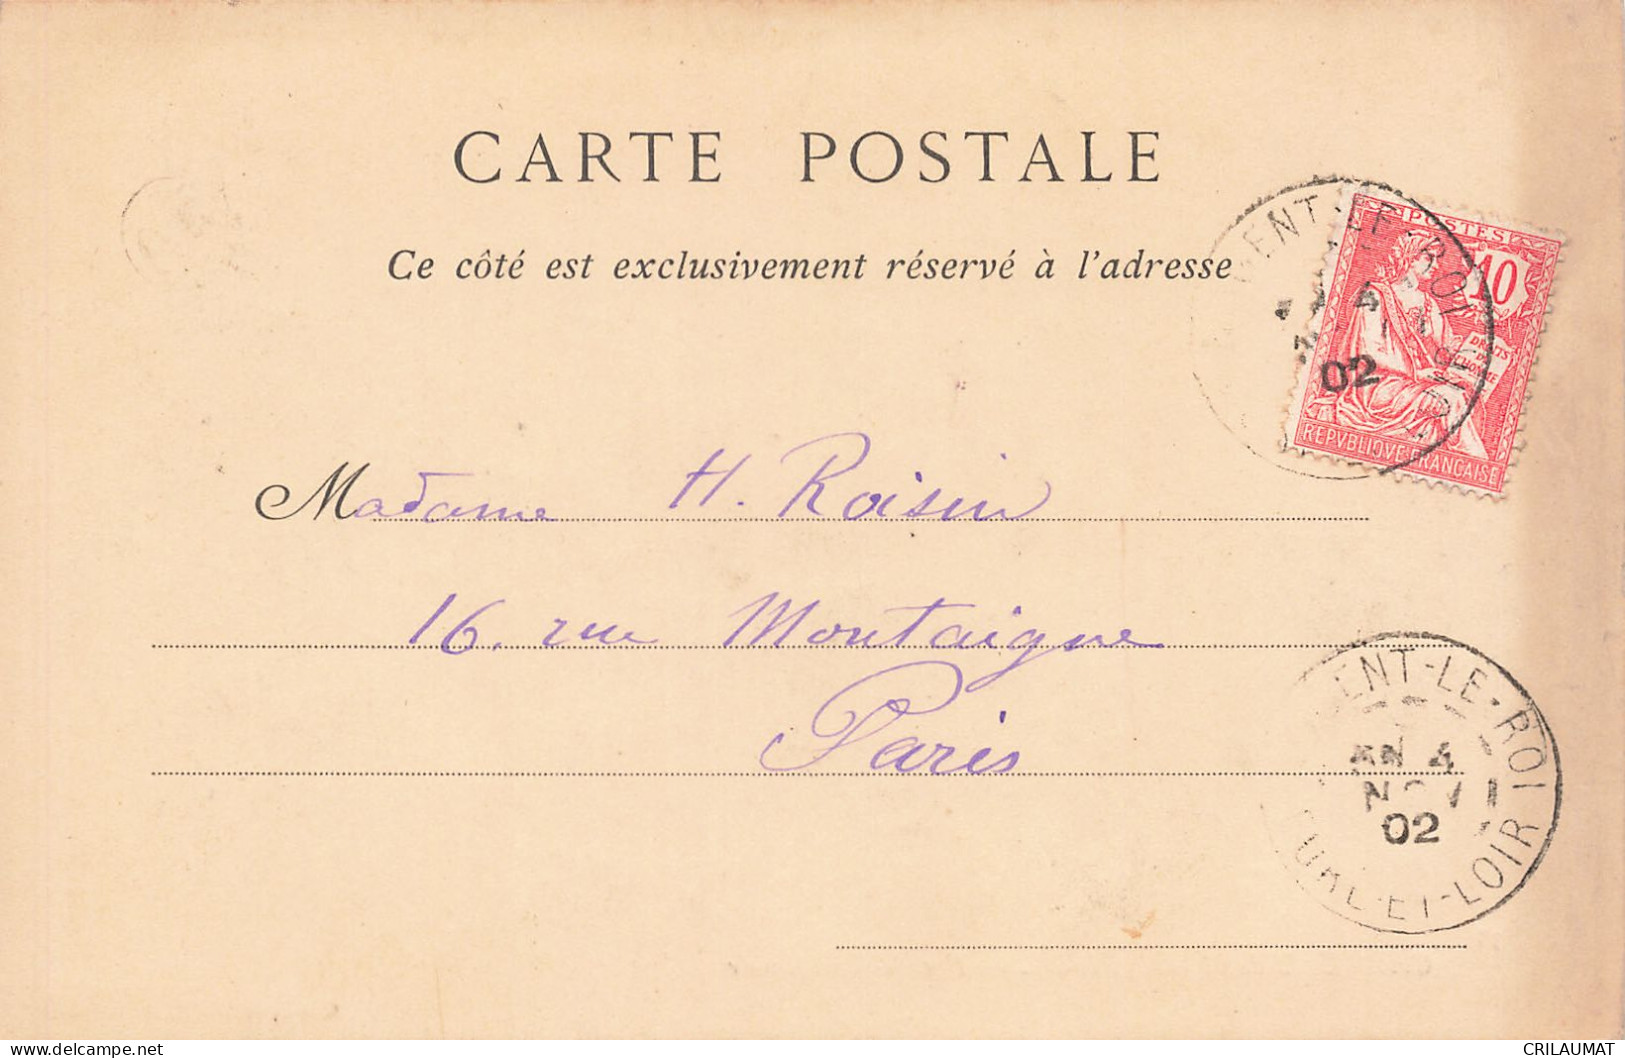 CARTE POSTALE
Ce côté est exclusivement réservé à l'adresse
POSTES
10
DROITS
DE
L'HOMME
REPVBLIQVE FRANCAISE
ENT-LE-ROI
4
02
LOIR
Madame H. Roisin
16. rue Montaigne
Paris
ENT-LE-ROI
4
NOV
02
EURE-ET-LOIR
CRILAUMAT